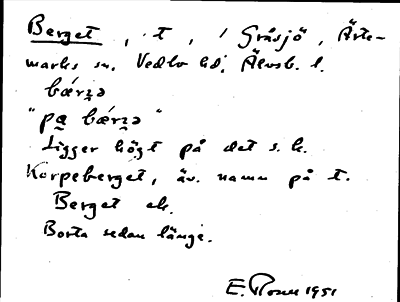 Berget, t, i Gråsjö, Ärte-
marks sn. Vedbo hd; Älvsb. l.
bǽrz̥ə
"pa̰ bǽrz̥ə"
Ligger högt på det s. k.
Korpeberget, äv. namn på t.
Berget ek.
Borta sedan länge.
E. 1951